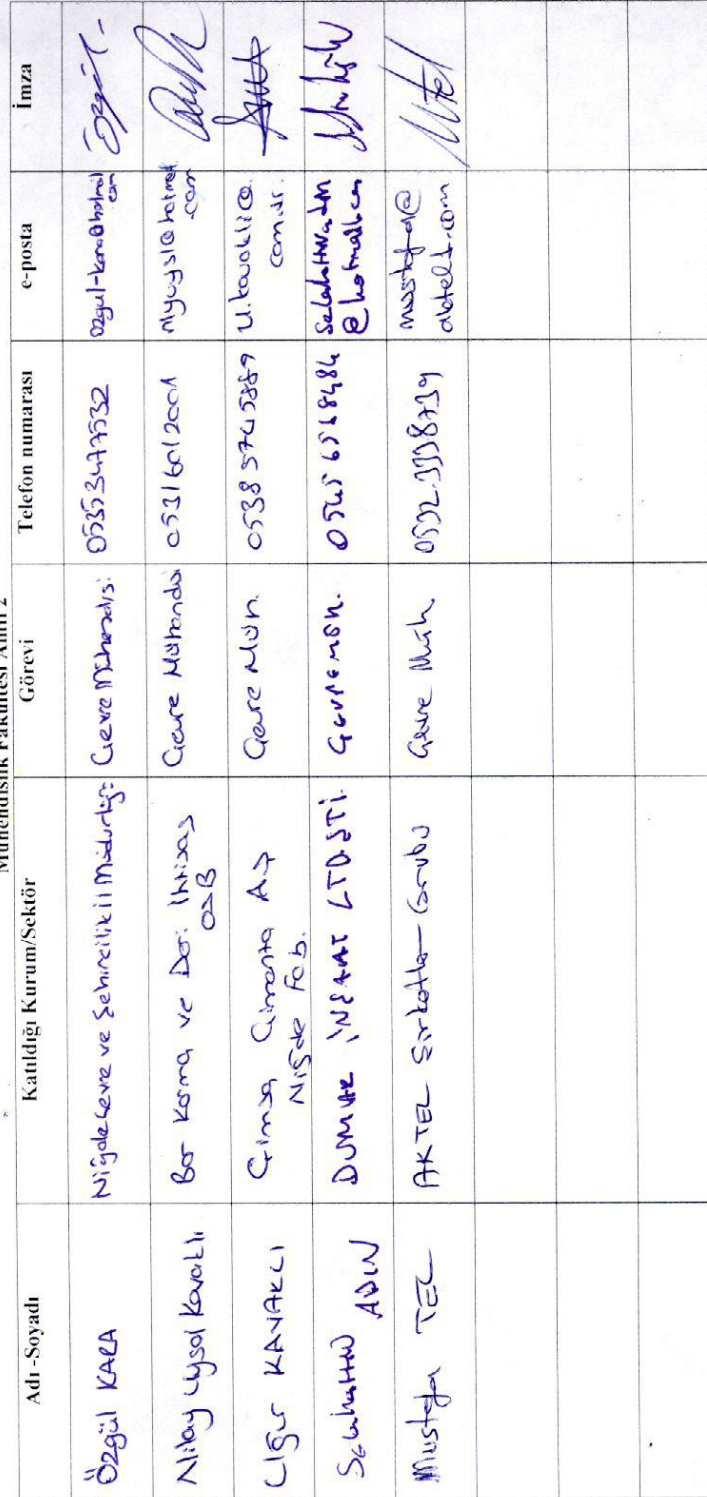 Mühendislik Fakültesi Amfi 2
Adı -Soyadı
Katıldığı Kurum/Sektör
Görevi
Telefon numarası
e-posta
İmza
Özgül KARA
Niğde Çevre ve Şehircilik il Müdürlüğü
Çevre Mühendisi
05353477532
ozgul-kara@hotmail
com
Nilay Uysal Kavaklı
Bor Karma ve Deri İhtisas
OSB
Çevre Mühendisi
05316012001
nlyuysl@hotmail
.com
Uğur KAVAKLI
Çimsa Çimento A.Ş
Niğde Fab.
Çevre Müh.
0538 5745889
u.kavakli@
com.tr.
Selahattin
ADIN
İNŞAAT LTD.ŞTİ.
Çevre müh.
0545 6568484
@hotmail.com
Mustafa TEL
AKTEL Şirketler Grubu
Çevre Müh.
mustafa@
aktelt.com